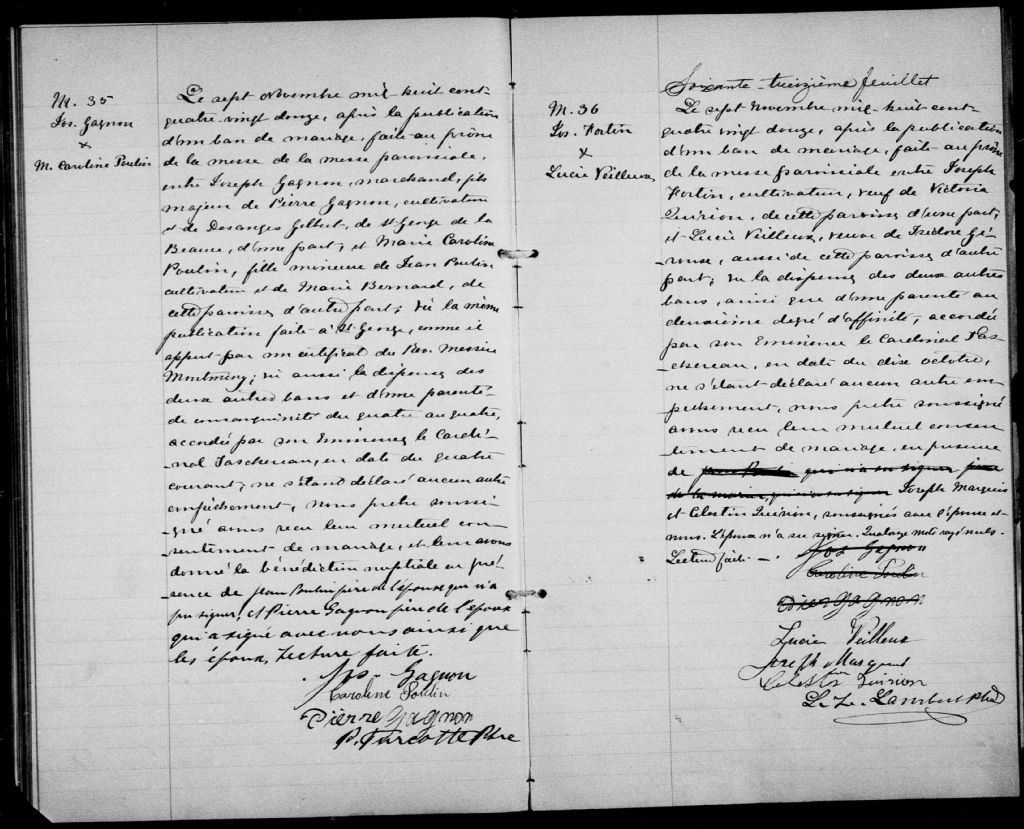 M. 35
Jos. Gagnon
x
M. Caroline Poulin
Le sept Novembre mil huit cent
quatre-vingt douze, après la publication
d'un ban de mariage, faite au prône
de la messe de la messe paroissiale,
entre Joseph Gagnon, marchand, fils
majeur de Pierre Gagnon, cultivateur
et de Desanges Gilbert, de St George de la
Beauce, d'une part; et Marie Caroline
Poulin, fille mineure de Jean Poulin
cultivateur et de Marie Bernard, de
cette paroisse d'autre part; vu la même
publication faite à St George, comme il
appert par un certificat du Rev. Messire
Montminy; vu aussi la dispense des
deux autres bans et d'une parenté
de consanguinité du quatre au quatre,
accordée par son Eminence le Cardi-
nal Taschereau, en date du quatre
courant; ne s'étant déclaré aucun autre
empêchement, nous prêtre soussi-
gné avons reçu leur mutuel con-
sentement de mariage, et leur avons
donné la bénédiction nuptiale en pré-
sence de Jean Poulin père de l'épouse qui n'a
pu signer, et Pierre Gagnon père de l'époux
qui a signé avec nous ainsi que
les époux, Lecture faite.
Jos. Gagnon
Caroline Poulin
Pierre Gagnon
P. Turcotte Ptre
Soixante-treizième feuillet
M. 36
Jos. Fortin
x
Lucie Veilleux
Le sept Novembre mil huit cent
quatre vingt douze, après la publication
d'un ban de mariage, faite au prône
de la messe paroissiale entre Joseph
Fortin, cultivateur, veuf de Victoria
Quirion, de cette paroisse d'une part;
et Lucie Veilleux, veuve de Isidore Gé-
rouse, aussi de cette paroisse d'autre
part; vu la dispense des deux autres
bans, ainsi que d'une parenté au
deuxième degré d'affinité, accordée
par son Eminence le Cardinal Tas-
chereau, en date du dix octobre,
ne s'étant déclaré aucun autre em-
pêchement, nous prêtre soussigné
avons reçu leur mutuel consen-
tement de mariage, en présence
de Jean Poulin qui n'a su signer père
de la mariée, qui n'a su signer Joseph Marquis
et Célestin Quirion, soussignés avec l'épouse et
nous. L'époux n'a su signer. Quatorze mots rayés nuls.
Lecture faite. —
Jos Gagnon
Caroline Poulin
Pierre Gagnon
Lucie Veilleux
Joseph Marquis
Célestin Quirion
L. Z. Lambert Ptre